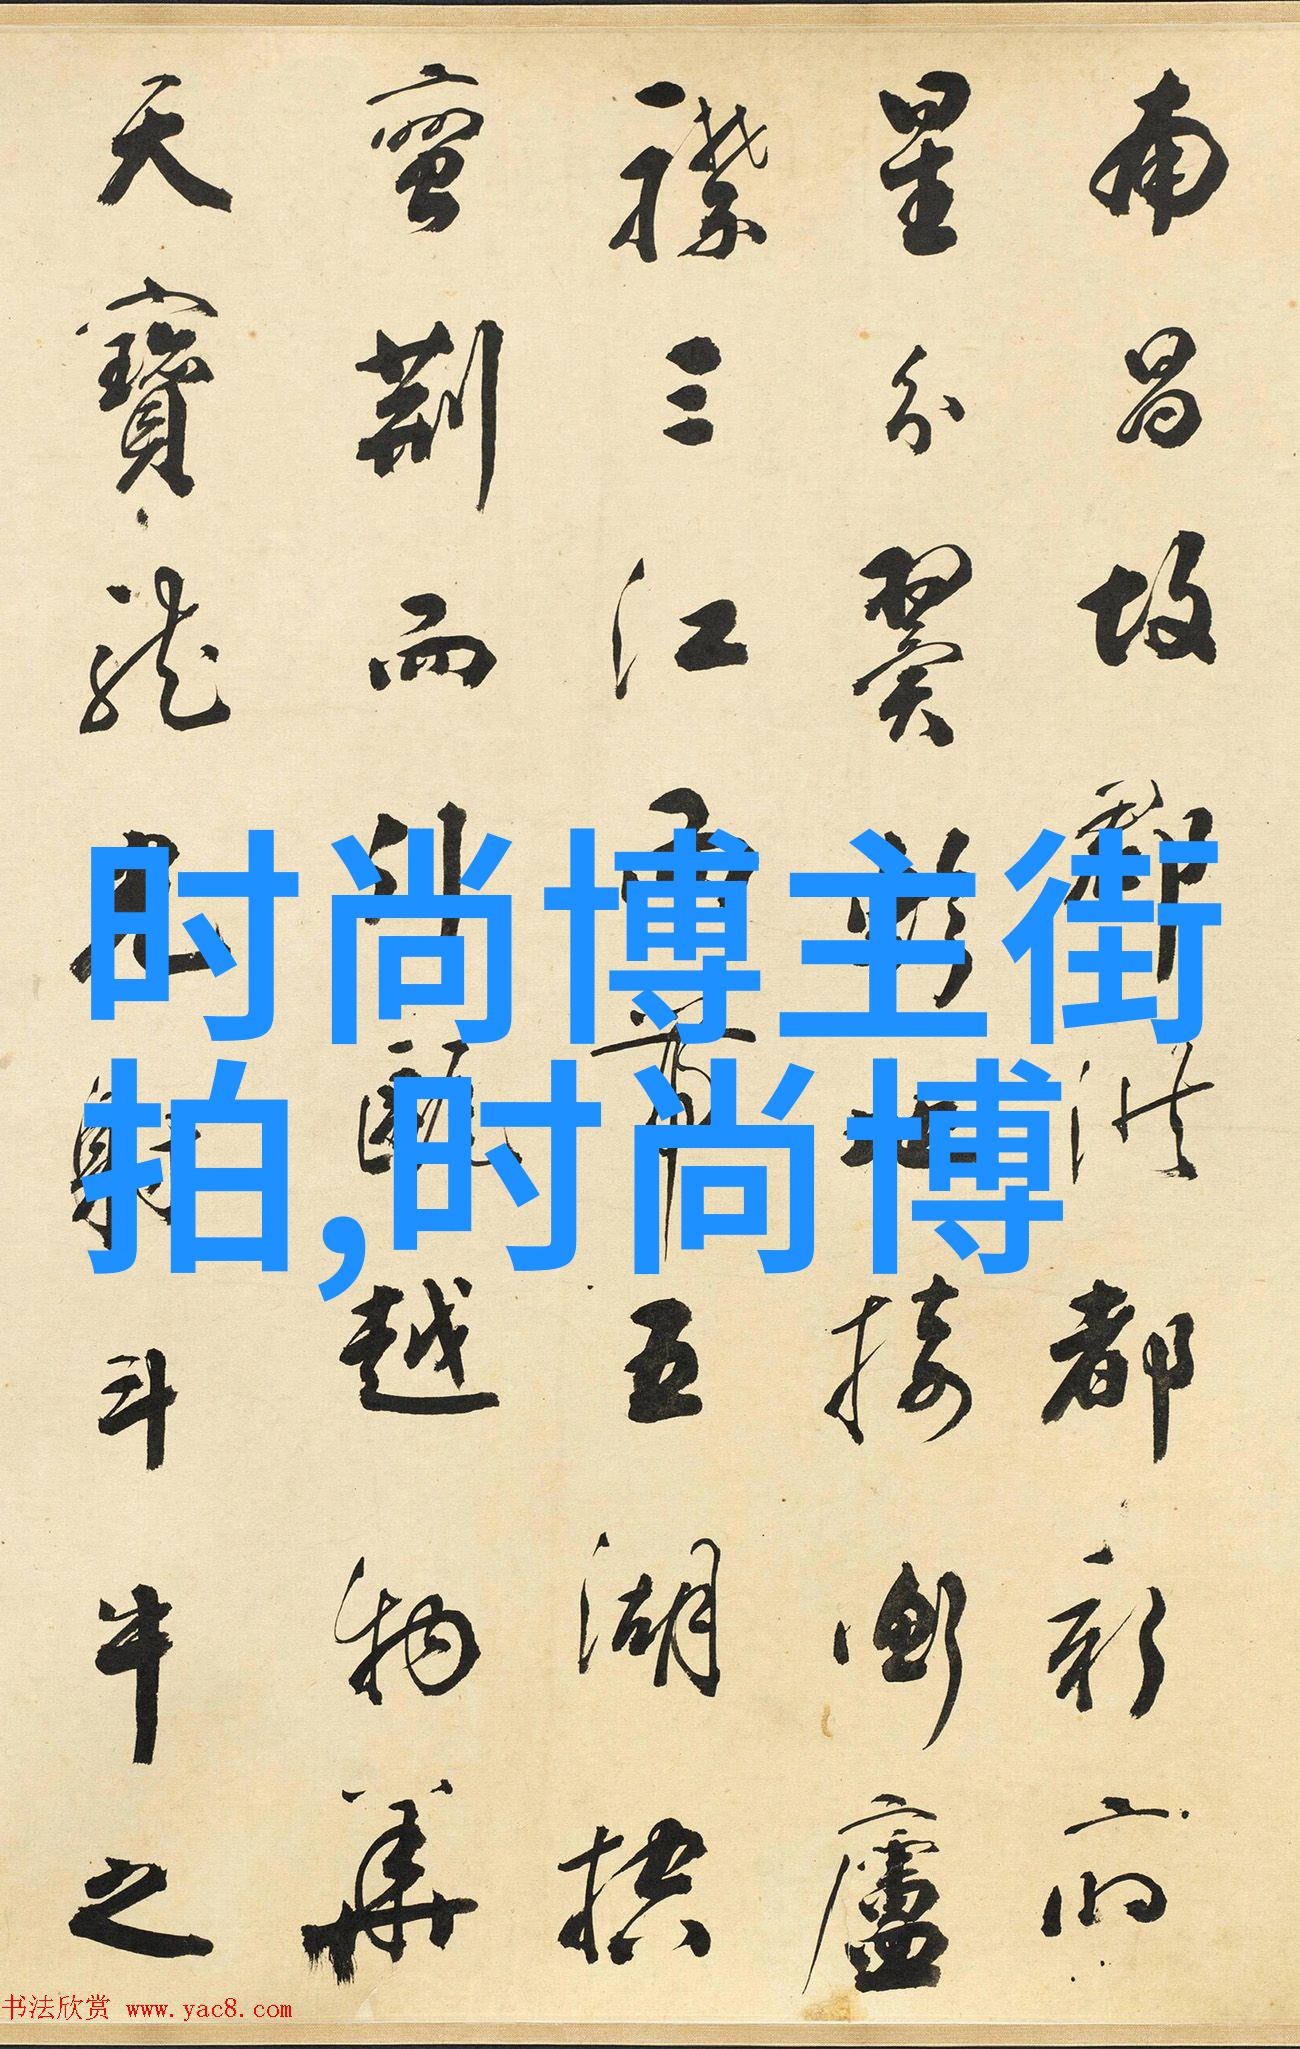 南昌故郡洪都新府
星分翼軫地接衡廬
襟三江而帶五湖控
蠻荊而引甌越物華
天寶龍光射斗牛之
时尚博主街
拍,时尚博
书法欣赏 www.yac8.com